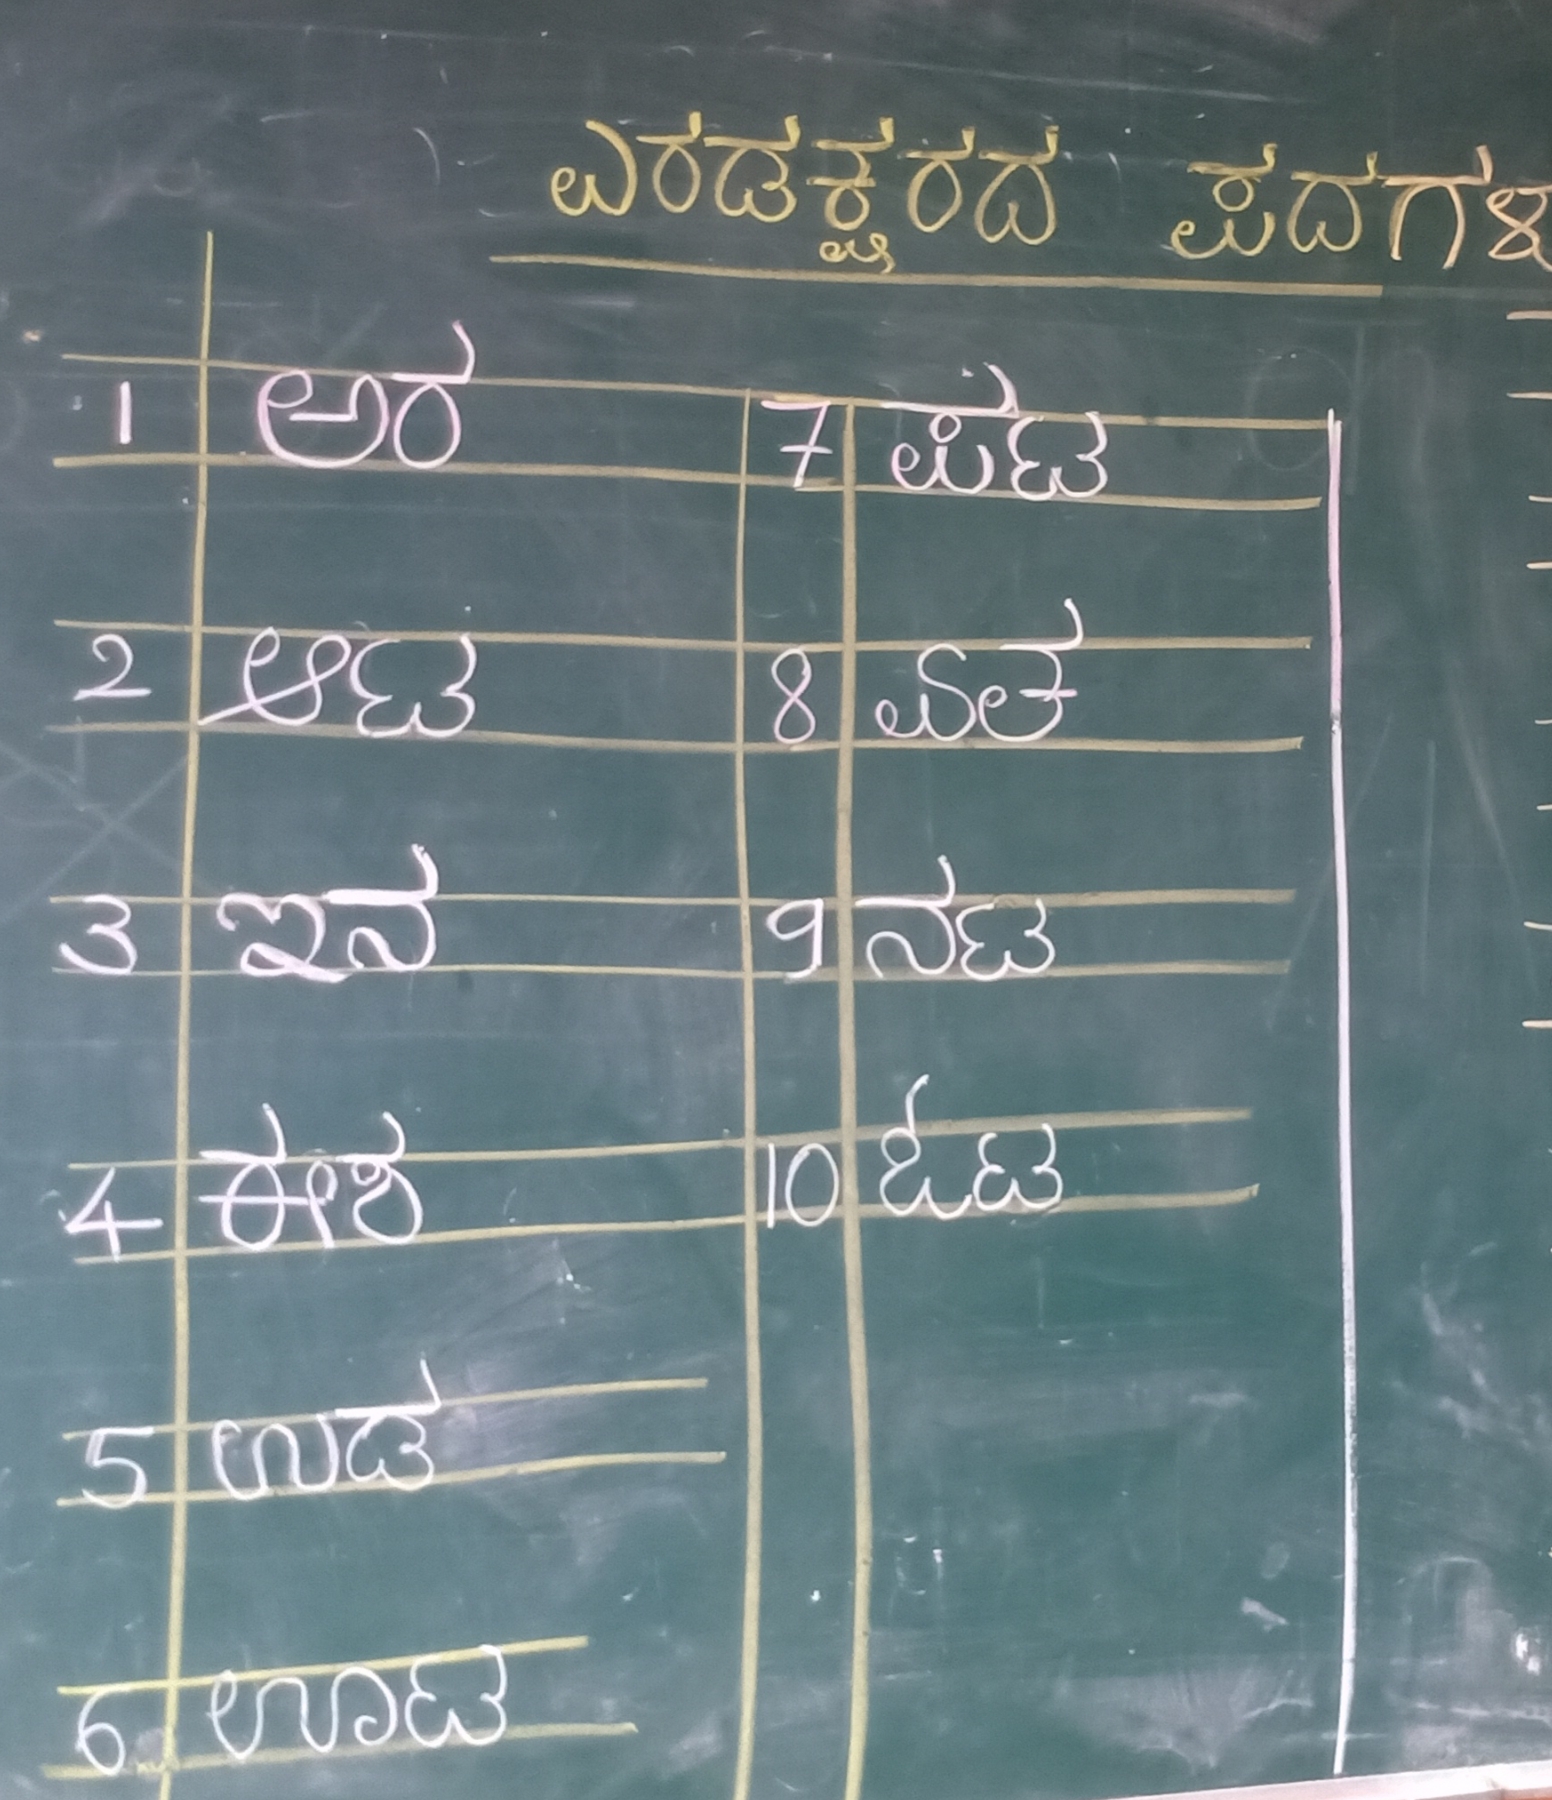 ಎರಡಕ್ಷರದ ಪದಗಳು
1 ಅರ
2 ಆಟ
3 ಇನ
4 ಈಶ
5 ಉಡ
6 ಊಟ
7 ಪಟ
8 ಏತ
9 ನಟ
10 ಓಟ